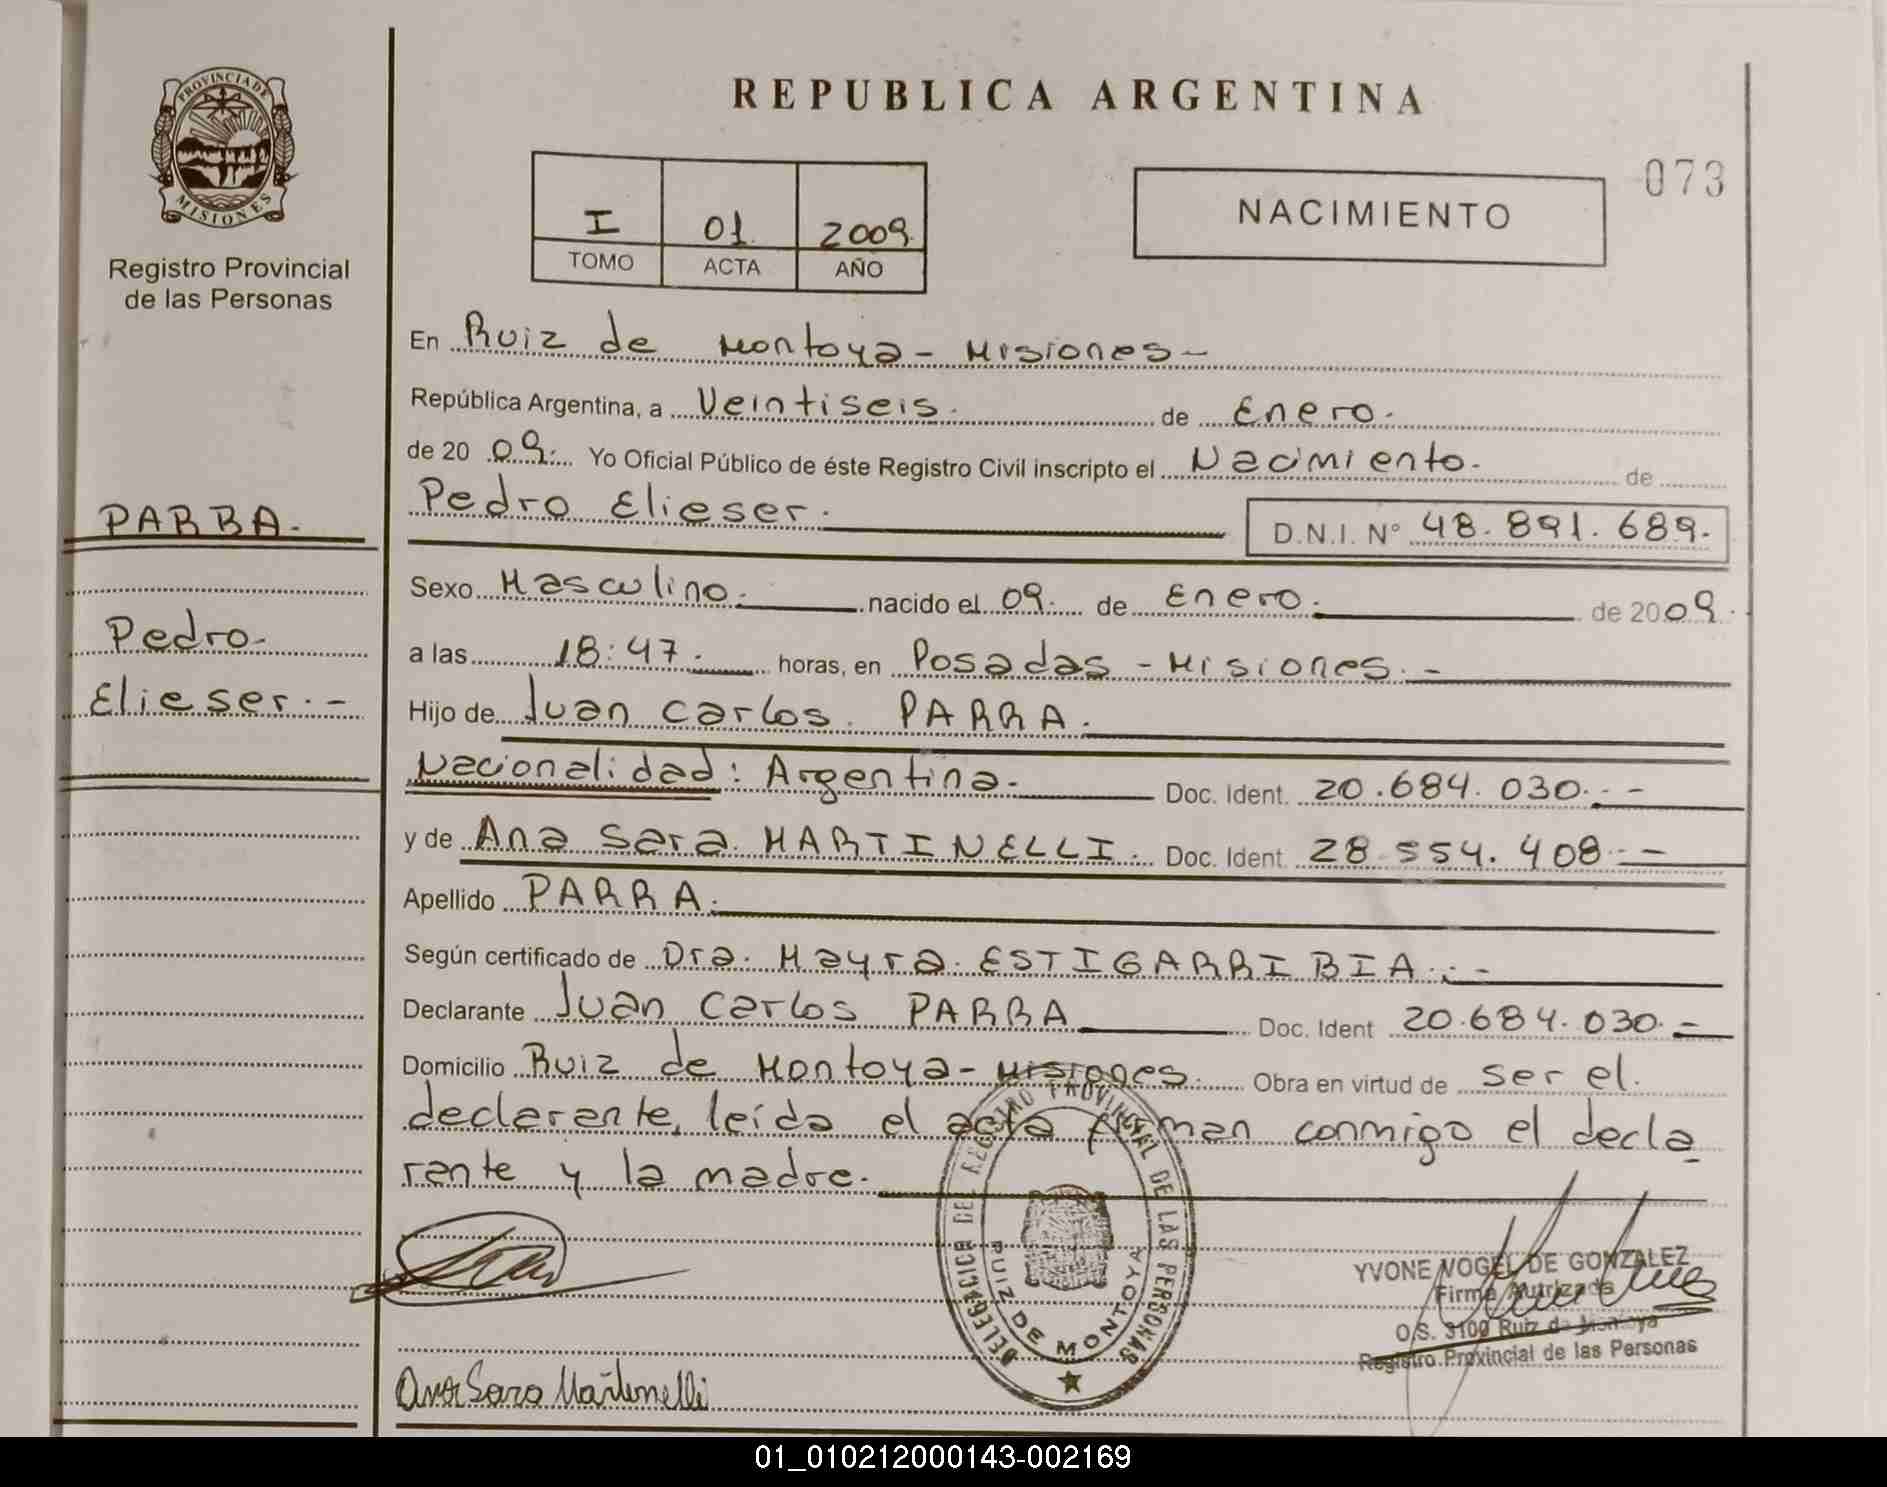 PROVINCIA DE
MISIONES
Registro Provincial
de las Personas
PARRA.
Pedro.
Elieser.-
REPUBLICA ARGENTINA
073
I 01 2009.
TOMO ACTA AÑO
NACIMIENTO
En Ruiz de Montoya - Misiones -
República Argentina, a Veintiseis. de Enero.
de 20 09. Yo Oficial Público de éste Registro Civil inscripto el Nacimiento. de
Pedro Elieser. D.N.I. Nº 48.891.689.
Sexo Masculino. nacido el 09. de Enero. de 2009.
a las 18:47. horas, en Posadas - Misiones. -
Hijo de Juan Carlos. PARRA.
Nacionalidad: Argentina. Doc. Ident. 20.684.030.-
y de Ana Sara MARTINELLI. Doc. Ident. 28.554.408.-
Apellido PARRA.
Según certificado de Dra. Mayra ESTIGARRIBIA.-
Declarante Juan Carlos PARRA Doc. Ident 20.684.030.-
Domicilio Ruiz de Montoya - Misiones. Obra en virtud de ser el.
declarante, leída el acta firman conmigo el decla
rante y la madre.
DELEGACION DE REGISTRO PROVINCIAL DE LAS PERSONAS
RUIZ DE MONTOYA
YVONE VOGEL DE GONZALEZ
Firma Autrizada
O.S. 3100 Ruiz de Montoya
Registro Provincial de las Personas
Ana Sara Martinelli
01_010212000143-002169